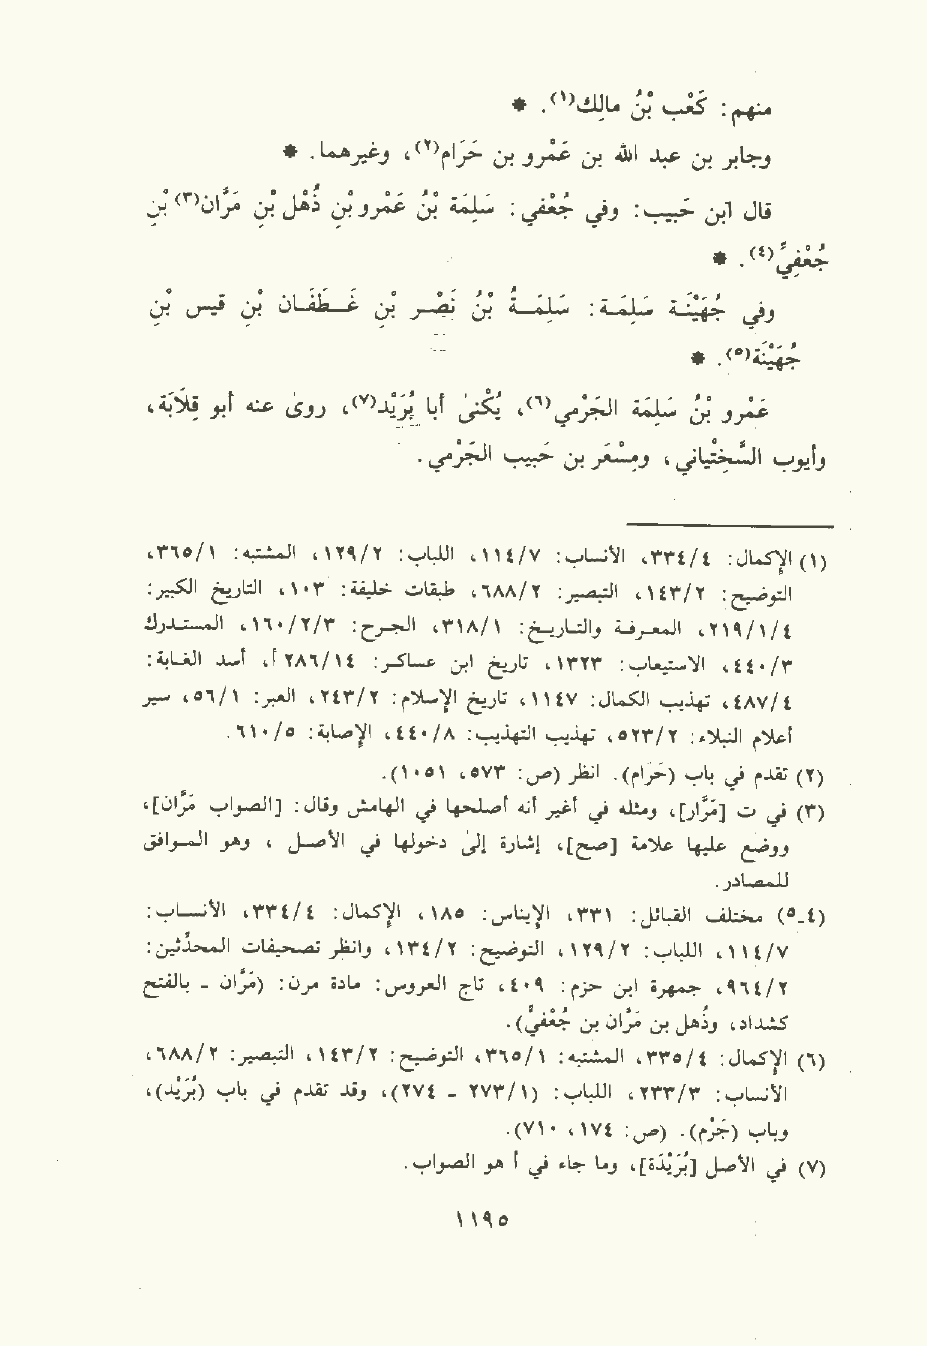 منهم: كَعْب بْنُ مالِك(١). *
وجابر بن عبد الله بن عَمْرو بن حَرَام(٢)، وغيرهما. *
قال ابن حَبيب: وفي جُعْفي: سَلِمَة بْنُ عَمْرو بْنِ ذُهْل بْنِ مَرَّان(٣) بْنِ
جُعْفِيّ(٤). *
وفي جُهَيْنَة سَلِمَة: سَلِمَةُ بْنُ نَصْر بْنِ غَطَفَان بْنِ قيس بْنِ
جُهَيْنَة(٥). *
عَمْرو بْنُ سَلِمَة الجَرْمي(٦)، يُكْنىٰ أبا بُرَيْد(٧)، روىٰ عنه أبو قِلَابَة،
وأيوب السَّخْتِياني، ومِسْعَر بن حَبيب الجَرْمي.
(١) الإكمال: ٣٣٤/٤، الأنساب: ١١٤/٧، اللباب: ١٢٩/٢، المشتبه: ٣٦٥/١،
التوضيح: ١٤٣/٢، التبصير: ٦٨٨/٢، طبقات خليفة: ١٠٣، التاريخ الكبير:
٢١٩/١/٤، المعرفة والتاريخ: ٣١٨/١، الجرح: ١٦٠/٢/٣، المستدرك
٤٤٠/٣، الاستيعاب: ١٣٢٣، تاريخ ابن عساكر: ٢٨٦/١٤ أ، أسد الغابة:
٤٨٧/٤، تهذيب الكمال: ١١٤٧، تاريخ الإسلام: ٢٤٣/٢، العبر: ٥٦/١، سير
أعلام النبلاء: ٥٢٣/٢، تهذيب التهذيب: ٤٤٠/٨، الإصابة: ٦١٠/٥.
(٢) تقدم في باب (حَرَام). انظر (ص: ٥٧٣، ١٠٥١).
(٣) في ت [مَرَّار]، ومثله في أغير أنه أصلحها في الهامش وقال: [الصواب مَرَّان]،
ووضع عليها علامة [صح]، إشارة إلىٰ دخولها في الأصل، وهو الموافق
للمصادر.
(٤_٥) مختلف القبائل: ٣٣١، الإيناس: ١٨٥، الإكمال: ٣٣٤/٤، الأنساب:
١١٤/٧، اللباب: ١٢٩/٢، التوضيح: ١٣٤/٢، وانظر تصحيفات المحدّثين:
٩٦٤/٢، جمهرة ابن حزم: ٤٠٩، تاج العروس: مادة مرن: (مَرَّان - بالفتح
كشداد، وذُهل بن مَرَّان بن جُعْفيّ).
(٦) الإكمال: ٣٣٥/٤، المشتبه: ٣٦٥/١، التوضيح: ١٤٣/٢، التبصير: ٦٨٨/٢،
الأنساب: ٢٣٣/٣، اللباب: (٢٧٣/١ - ٢٧٤)، وقد تقدم في باب (بُرَيْد)،
وباب (جَرْم). (ص: ١٧٤، ٧١٠).
(٧) في الأصل [بُرَيْدَة]، وما جاء في أ هو الصواب.
١١٩٥